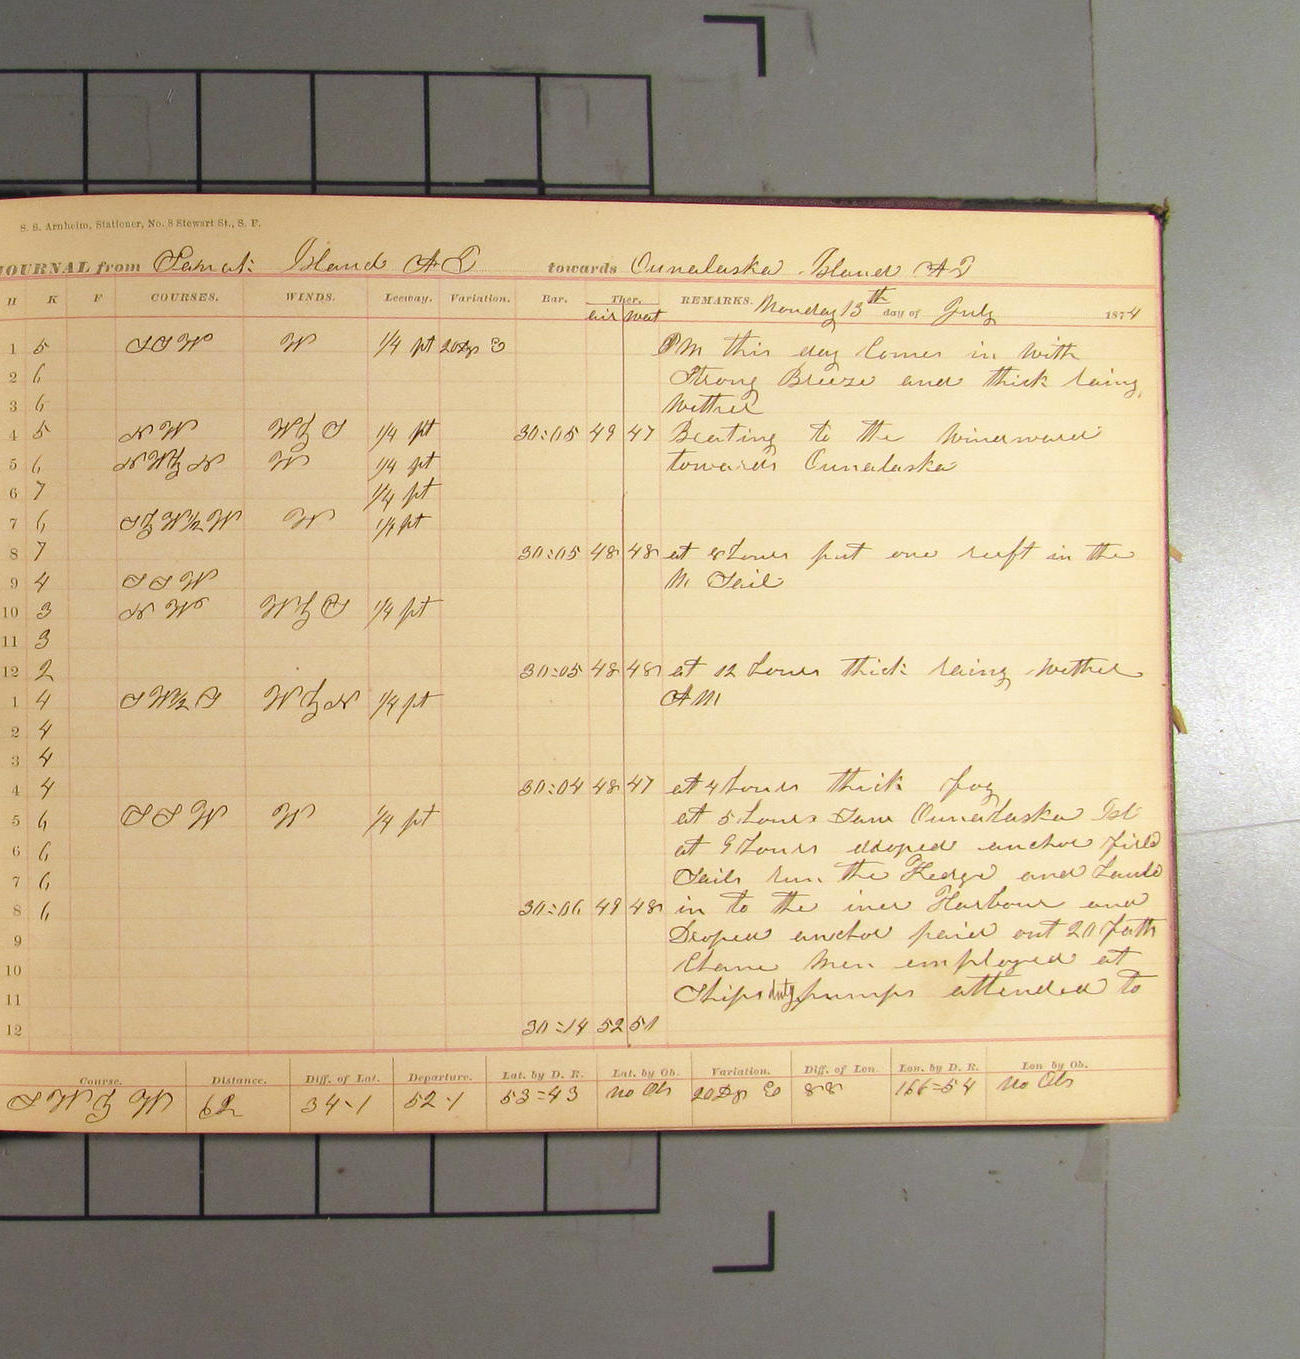 S. S. Arnheim, Stationer, No. 8 Stewart St., S. F.
JOURNAL from Sanak Island A T towards Ounalaska Island A T
H K F COURSES. WINDS. Leeway. Variation. Bar. Ther. REMARKS. Monday 13th day of July 1874
air wat
1 5 SSW W 1/4 pt 20Dg E PM this day Comes in with
2 6 Strong Breeze and thick raing
3 6 wether
4 5 NW WbS 1/4 pt 30=05 49 47 Beating to the windward
5 6 NWbN W 1/4 pt towards Ounalaska
6 7 1/4 pt
7 6 SbW1/2W W 1/4 pt
8 7 30=05 48 48 at 8 hours put one reeft in the
9 4 SSW M Sail
10 3 NW WbS 1/4 pt
11 3
12 2 30=05 48 48 at 12 hours thick raing wether
1 4 SW1/2S WbN 1/4 pt AM
2 4
3 4
4 4 30=04 48 47 at 4 hours thick fog
5 6 SSW W 1/4 pt at 5 hours saw Ounalaska Isl
6 6 at 9 hours droped anchor
7 6 Sails run the Kedge and
8 6 30=06 49 48 in to the iner Harbour and
9 Droped anchor paied out 20 fath
10 Chane Men employed at
11 Ships duty pumps attended to
12 30=14 52 51
Course. Distance. Diff. of Lat. Departure. Lat. by D. R. Lat. by Ob. Variation. Diff. of Lon. Lon. by D. R. Lon by Ob.
SWbW 62 34-1 52-1 53=43 no Obs 20Dg E 88 166=54 no Obs